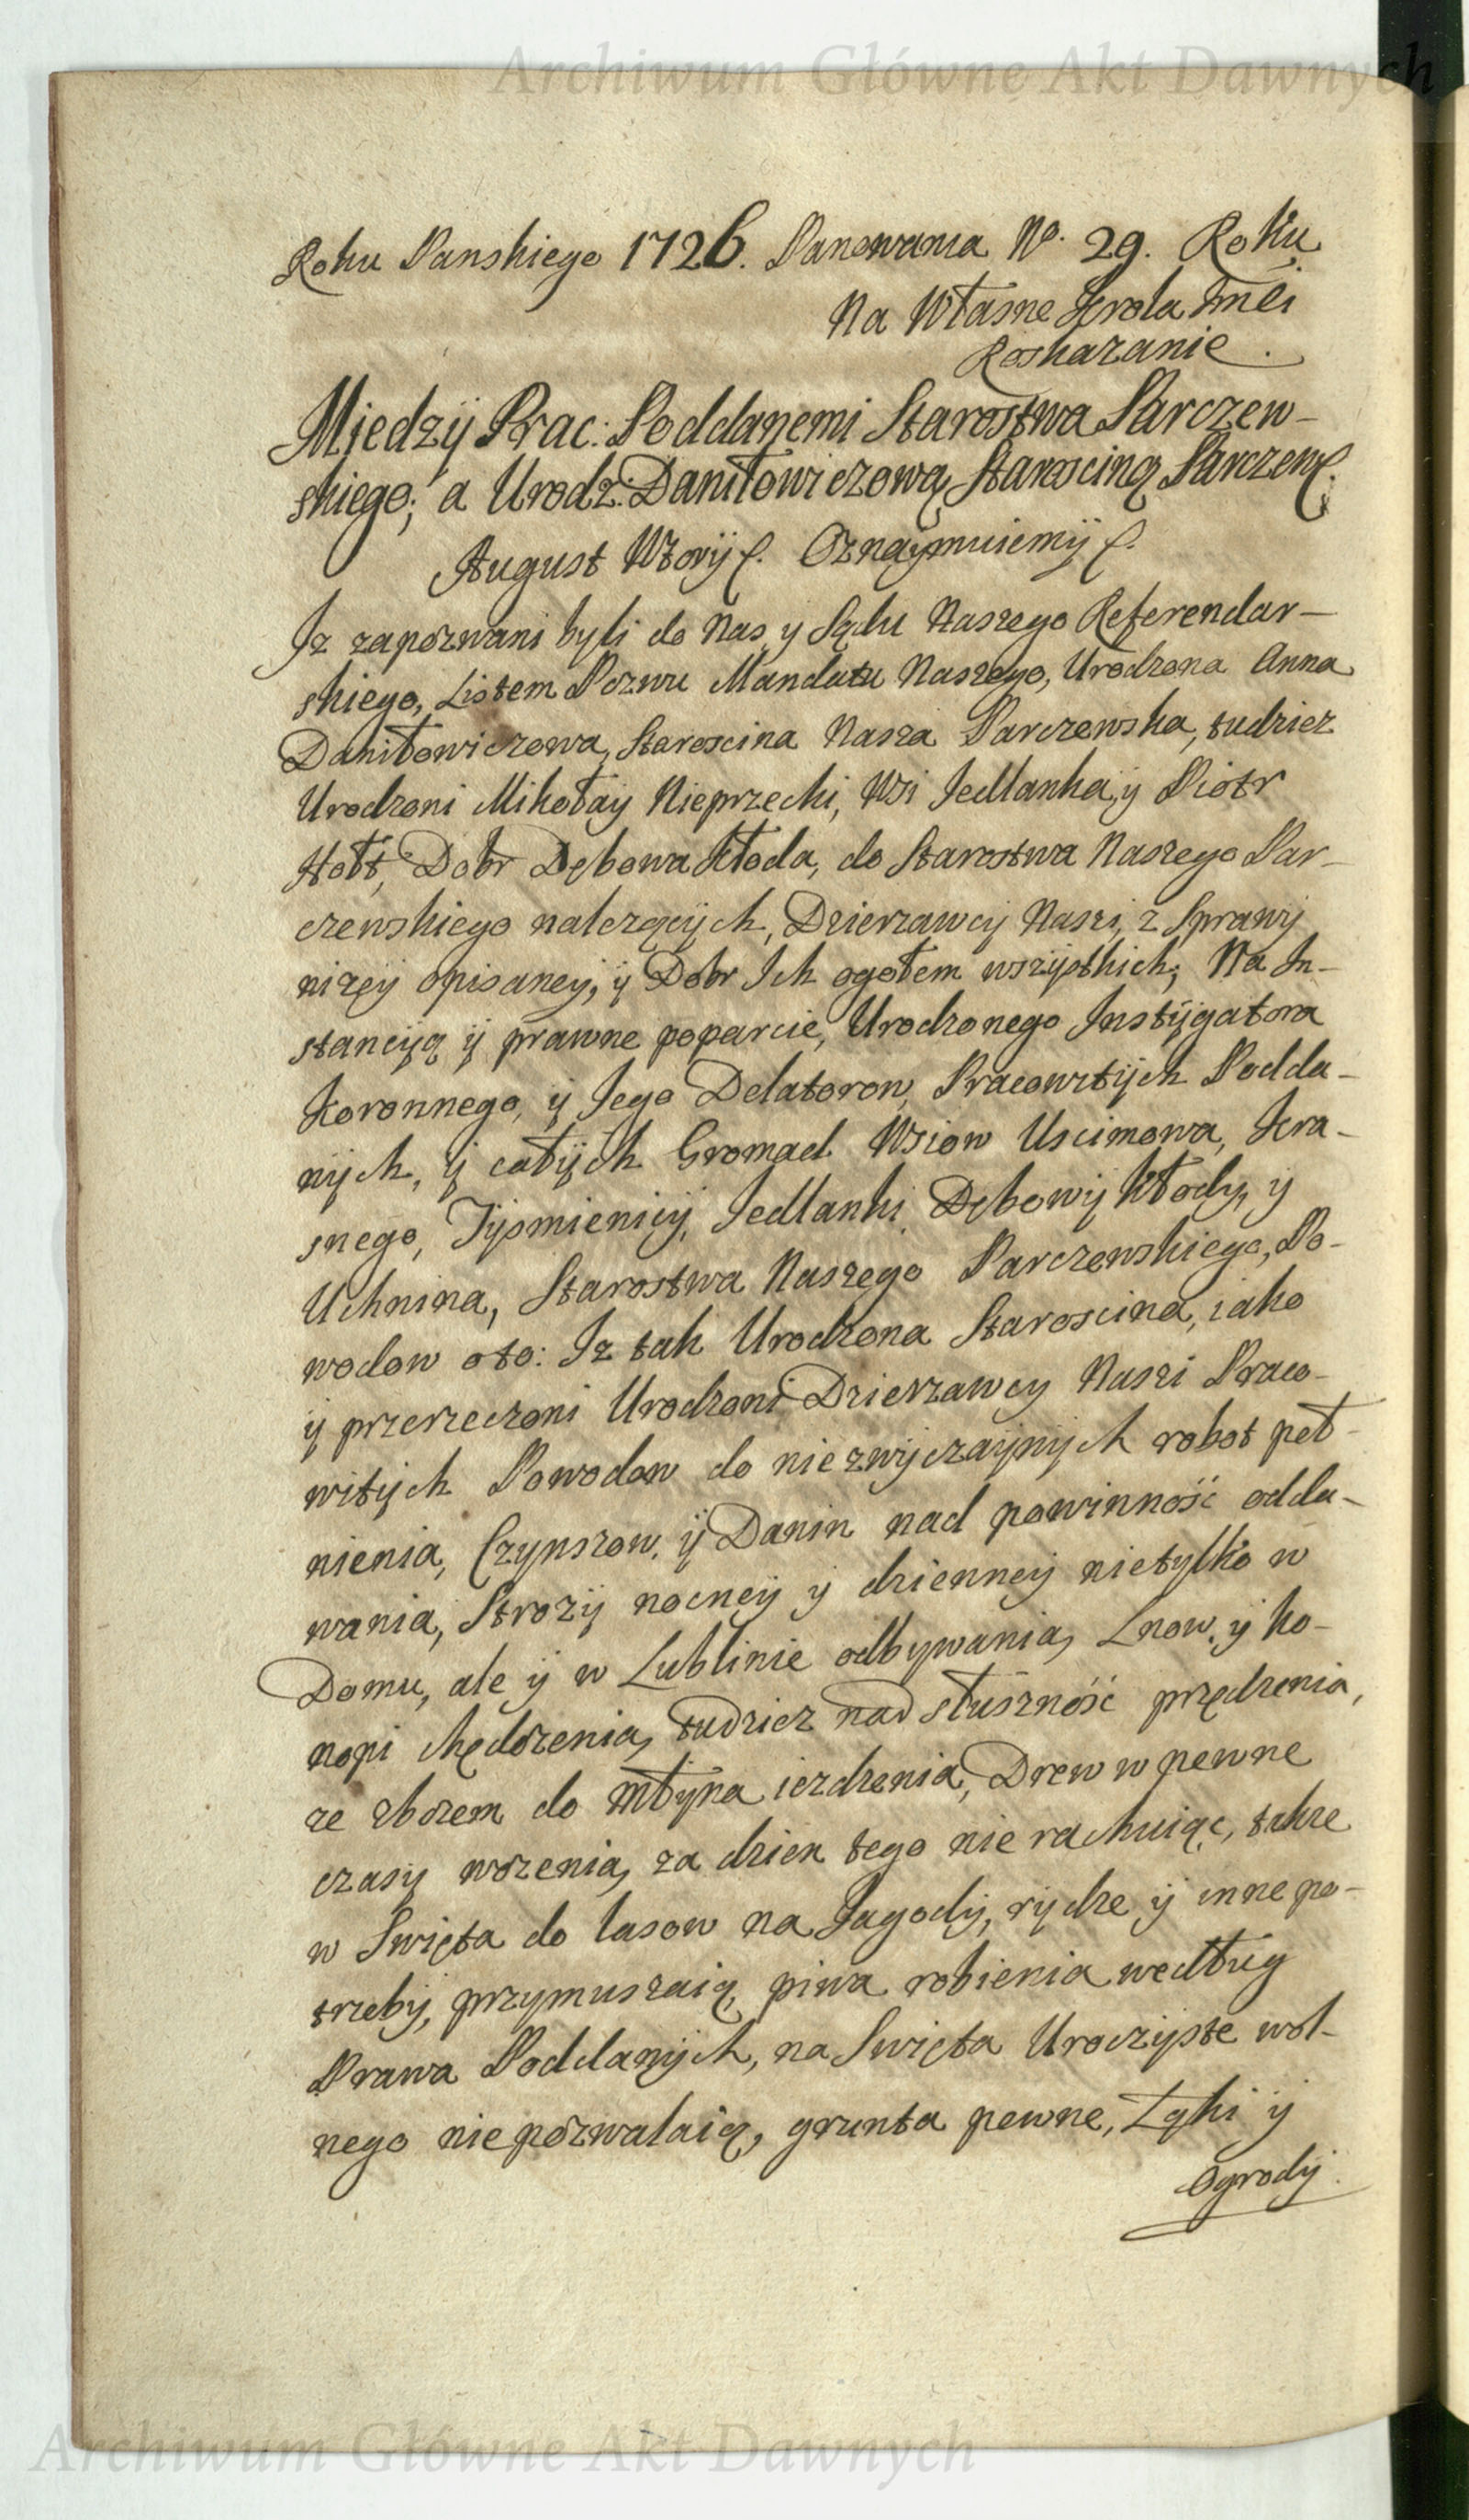 Archiwum Główne Akt Dawnych
Roku Panskiego 1726. Panowania No. 29. Roku
Na Własne Krola Jmći
Roskazanie.
Miedzÿ Prac: Poddanemi Starostwa Parczew-
skiego; a Urodz: Daniłowiczową Starosciną Parczew.
August Wtorÿ &. Oznaÿmuiemÿ &.
Iz zapozwani byli do Nas y Sądu Naszego Referendar-
skiego, Listem Pozwu Mandatu Naszego, Urodzona Anna
Daniłowiczowa, Staroscina Nasza Parczewska, tudziez
Urodzeni Mikołaÿ Nieprzecki, Wsi Jedlanka, y Piotr
Hołt, Dobr Dębowa Kłoda, do Starostwa Naszego Par-
czewskiego nalezącÿch, Dzierzawcÿ Nasi, z Sprawÿ
nizeÿ opisaneÿ, ÿ Dobr Ich ogołem wszÿstkich; Na In-
stancÿą ÿ prawne poparcie, Urodzonego Instÿgatora
Koronnego, ÿ Jego Delatorow, Pracowitÿch Podda-
nÿch, ÿ całÿch Gromad Wsiow Uscimowa, Kra-
snego, Tÿsmienicÿ, Jedlanki Dębowÿ Kłody, y
Uchnina, Starostwa Naszego Parczewskiego, Po-
wodow oto: Iz tak Urodzona Staroscina, iako
ÿ przerzeczoni Urodzeni Dzierzawcy Nasi Praco-
witÿch Powodow do niezwÿczaÿnÿch robot peł-
nienia, Czynszow, ÿ Danin nad powinność odda-
wania, Strozÿ nocneÿ y dzienneÿ nietylko w
Domu, ale ÿ w Lublinie odbywania, Lnow, ÿ ko-
nopi chędozenia, tudziez nad słuszność przędzenia,
ze zbozem do Młyna iezdzenia, Drew w pewne
czasy wozenia, za dzien tego nie rachuiąc, takze
w Swięta do lasow na Jagodÿ, rÿdze ÿ inne po-
trzebÿ, przymuszaią, piwa robienia według
Prawa Poddanÿch, na Swięta Uroczÿste wol-
nego niepozwalaią, grunta pewne, Łąki ÿ
Ogrodÿ.
Archiwum Główne Akt Dawnych